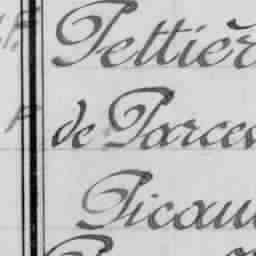 Pettier
de Parcev
Picau